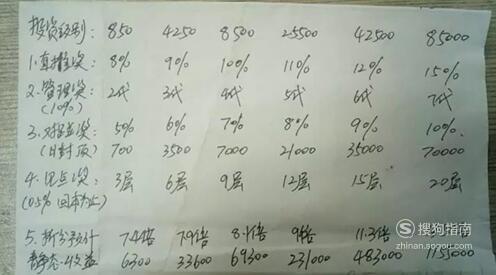 投资级别: 850 4250 8500 25500 42500 85000
1.直推奖: 8% 9% 10% 11% 12% 15%
2.管理奖: 2代 3代 4代 5代 6代 7代
(10%)
3.对碰奖: 5% 6% 7% 8% 9% 10%
(日封顶) 700 3500 7000 21000 35000 70000
4.见点奖: 3层 6层 9层 12层 15层 20层
(0.5% 回本为止)
5.拆分预计 7.4倍 7.9倍 8.1倍 9倍 11.3倍
静态收益 6300 33600 69300 231000 483000 1155000
搜狗指南
zhinan.sogou.com